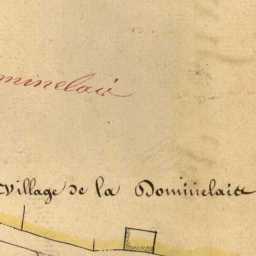 minelais
Village de la Dominelais